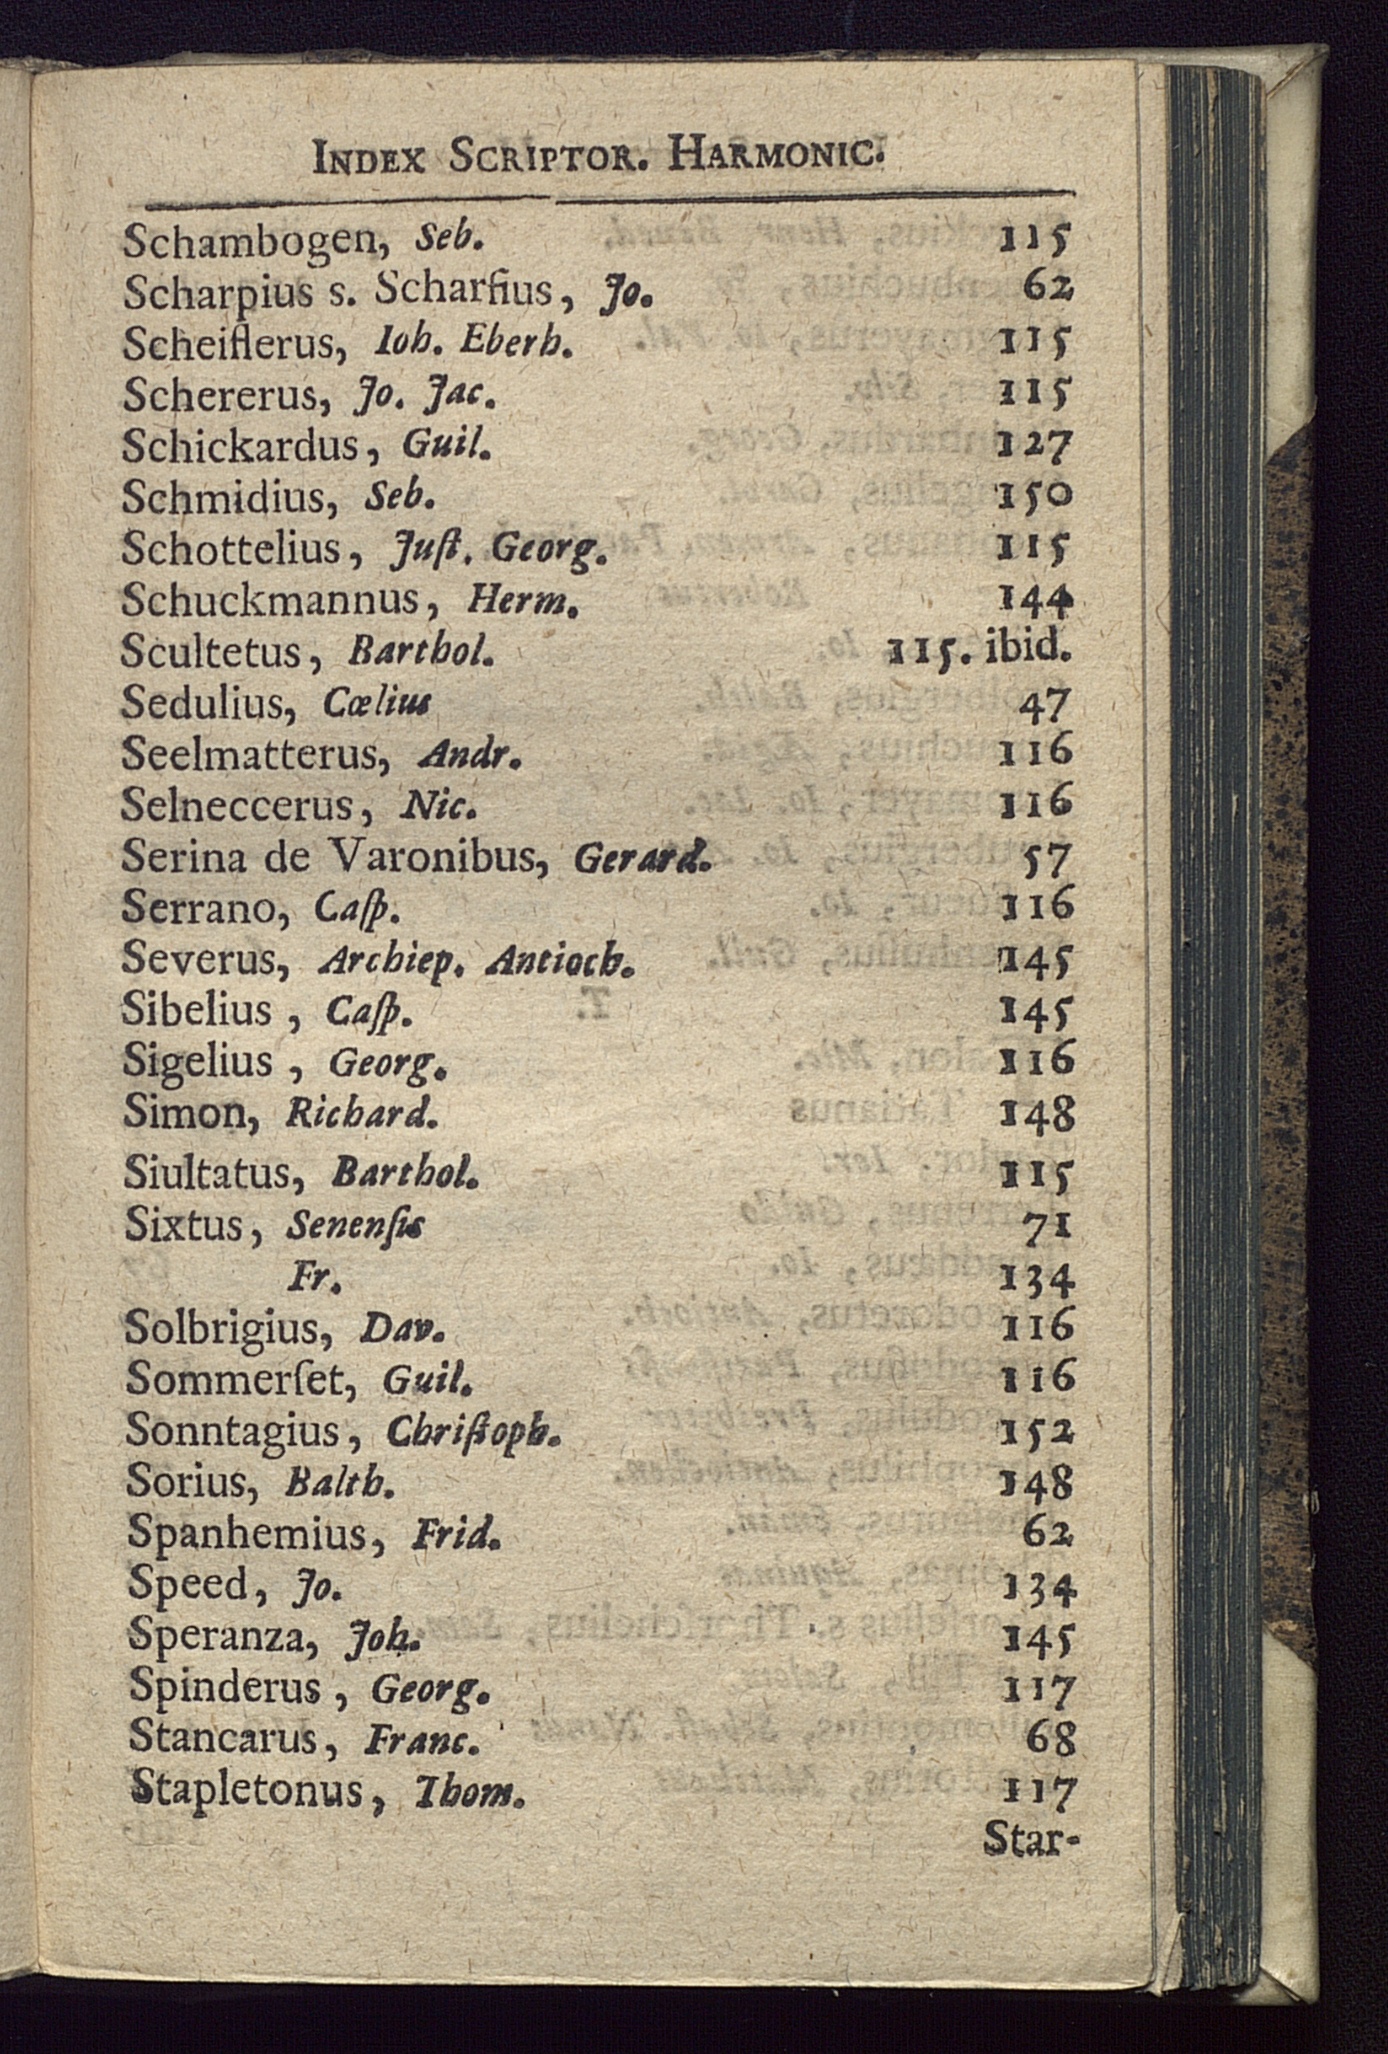 INDEX SCRIPTOR. HARMONIC.
Schambogen, Seb. 115
Scharpius s. Scharfius, Jo. 62
Scheiflerus, Ioh. Eberh. 115
Schererus, Jo. Jac. 115
Schickardus, Guil. 127
Schmidius, Seb. 150
Schottelius, Juſt. Georg. 115
Schuckmannus, Herm. 144
Scultetus, Barthol. 115. ibid.
Sedulius, Cœlius 47
Seelmatterus, Andr. 116
Selneccerus, Nic. 116
Serina de Varonibus, Gerard. 57
Serrano, Caſp. 116
Severus, Archiep. Antioch. 145
Sibelius, Caſp. 145
Sigelius, Georg. 116
Simon, Richard. 148
Siultatus, Barthol. 115
Sixtus, Senenſis 71
Fr. 134
Solbrigius, Dav. 116
Sommerſet, Guil. 116
Sonntagius, Chriſtoph. 152
Sorius, Balth. 148
Spanhemius, Frid. 62
Speed, Jo. 134
Speranza, Joh. 145
Spinderus, Georg. 117
Stancarus, Franc. 68
Stapletonus, Thom. 117
Star-